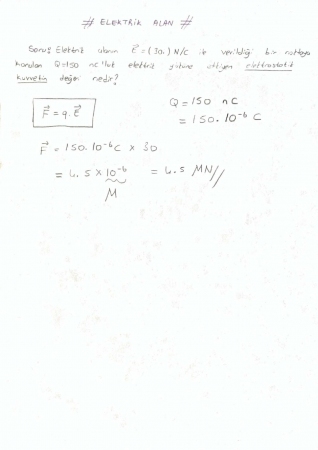 # ELEKTRİK ALAN #
Soru: Elektrik alanın E = (30.) N/C ile verildiği bir noktaya
konulan Q=150 nC'luk elektrik yüküne etkiyen elektrostatik
kuvvetin değeri nedir?
F = q.E
Q = 150 nC
= 150.10⁻⁶ C
F = 150.10⁻⁶C x 30
= 4.5 x 10⁻⁶ = 4.5 MN//
M